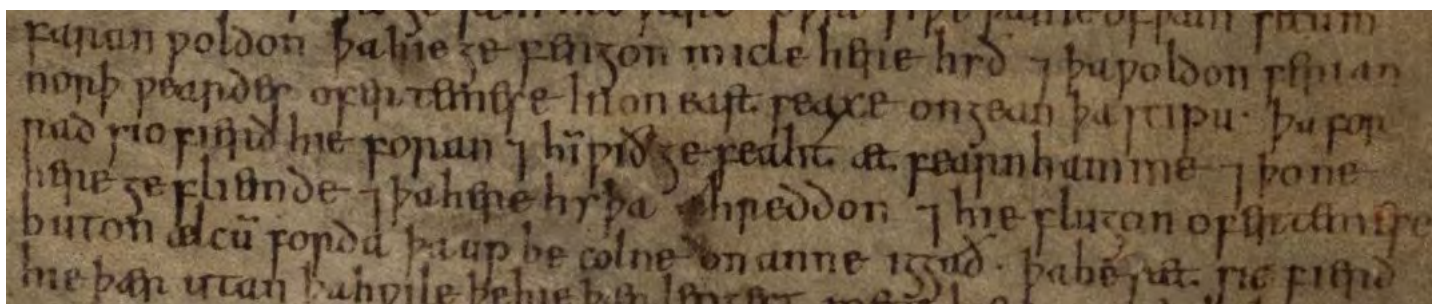 faran ƿoldon þa hie ge fengon micle here hyð ⁊ þa ƿoldon ferian
norþ ƿeardes ofer temese in on east seaxe ongean þa scipu · þa for
rad sio fierd hie foran ⁊ hī ƿið ge feaht æt fearnhamme ⁊ þone
here ge fliemde ⁊ þa here hyþa ahreddon ⁊ hie flugon ofer temese
buton ælcū forda þa up be colne on anne iggað · þa be sæt sio fierd
hie þær utan þa hƿile þe hie þær lengest